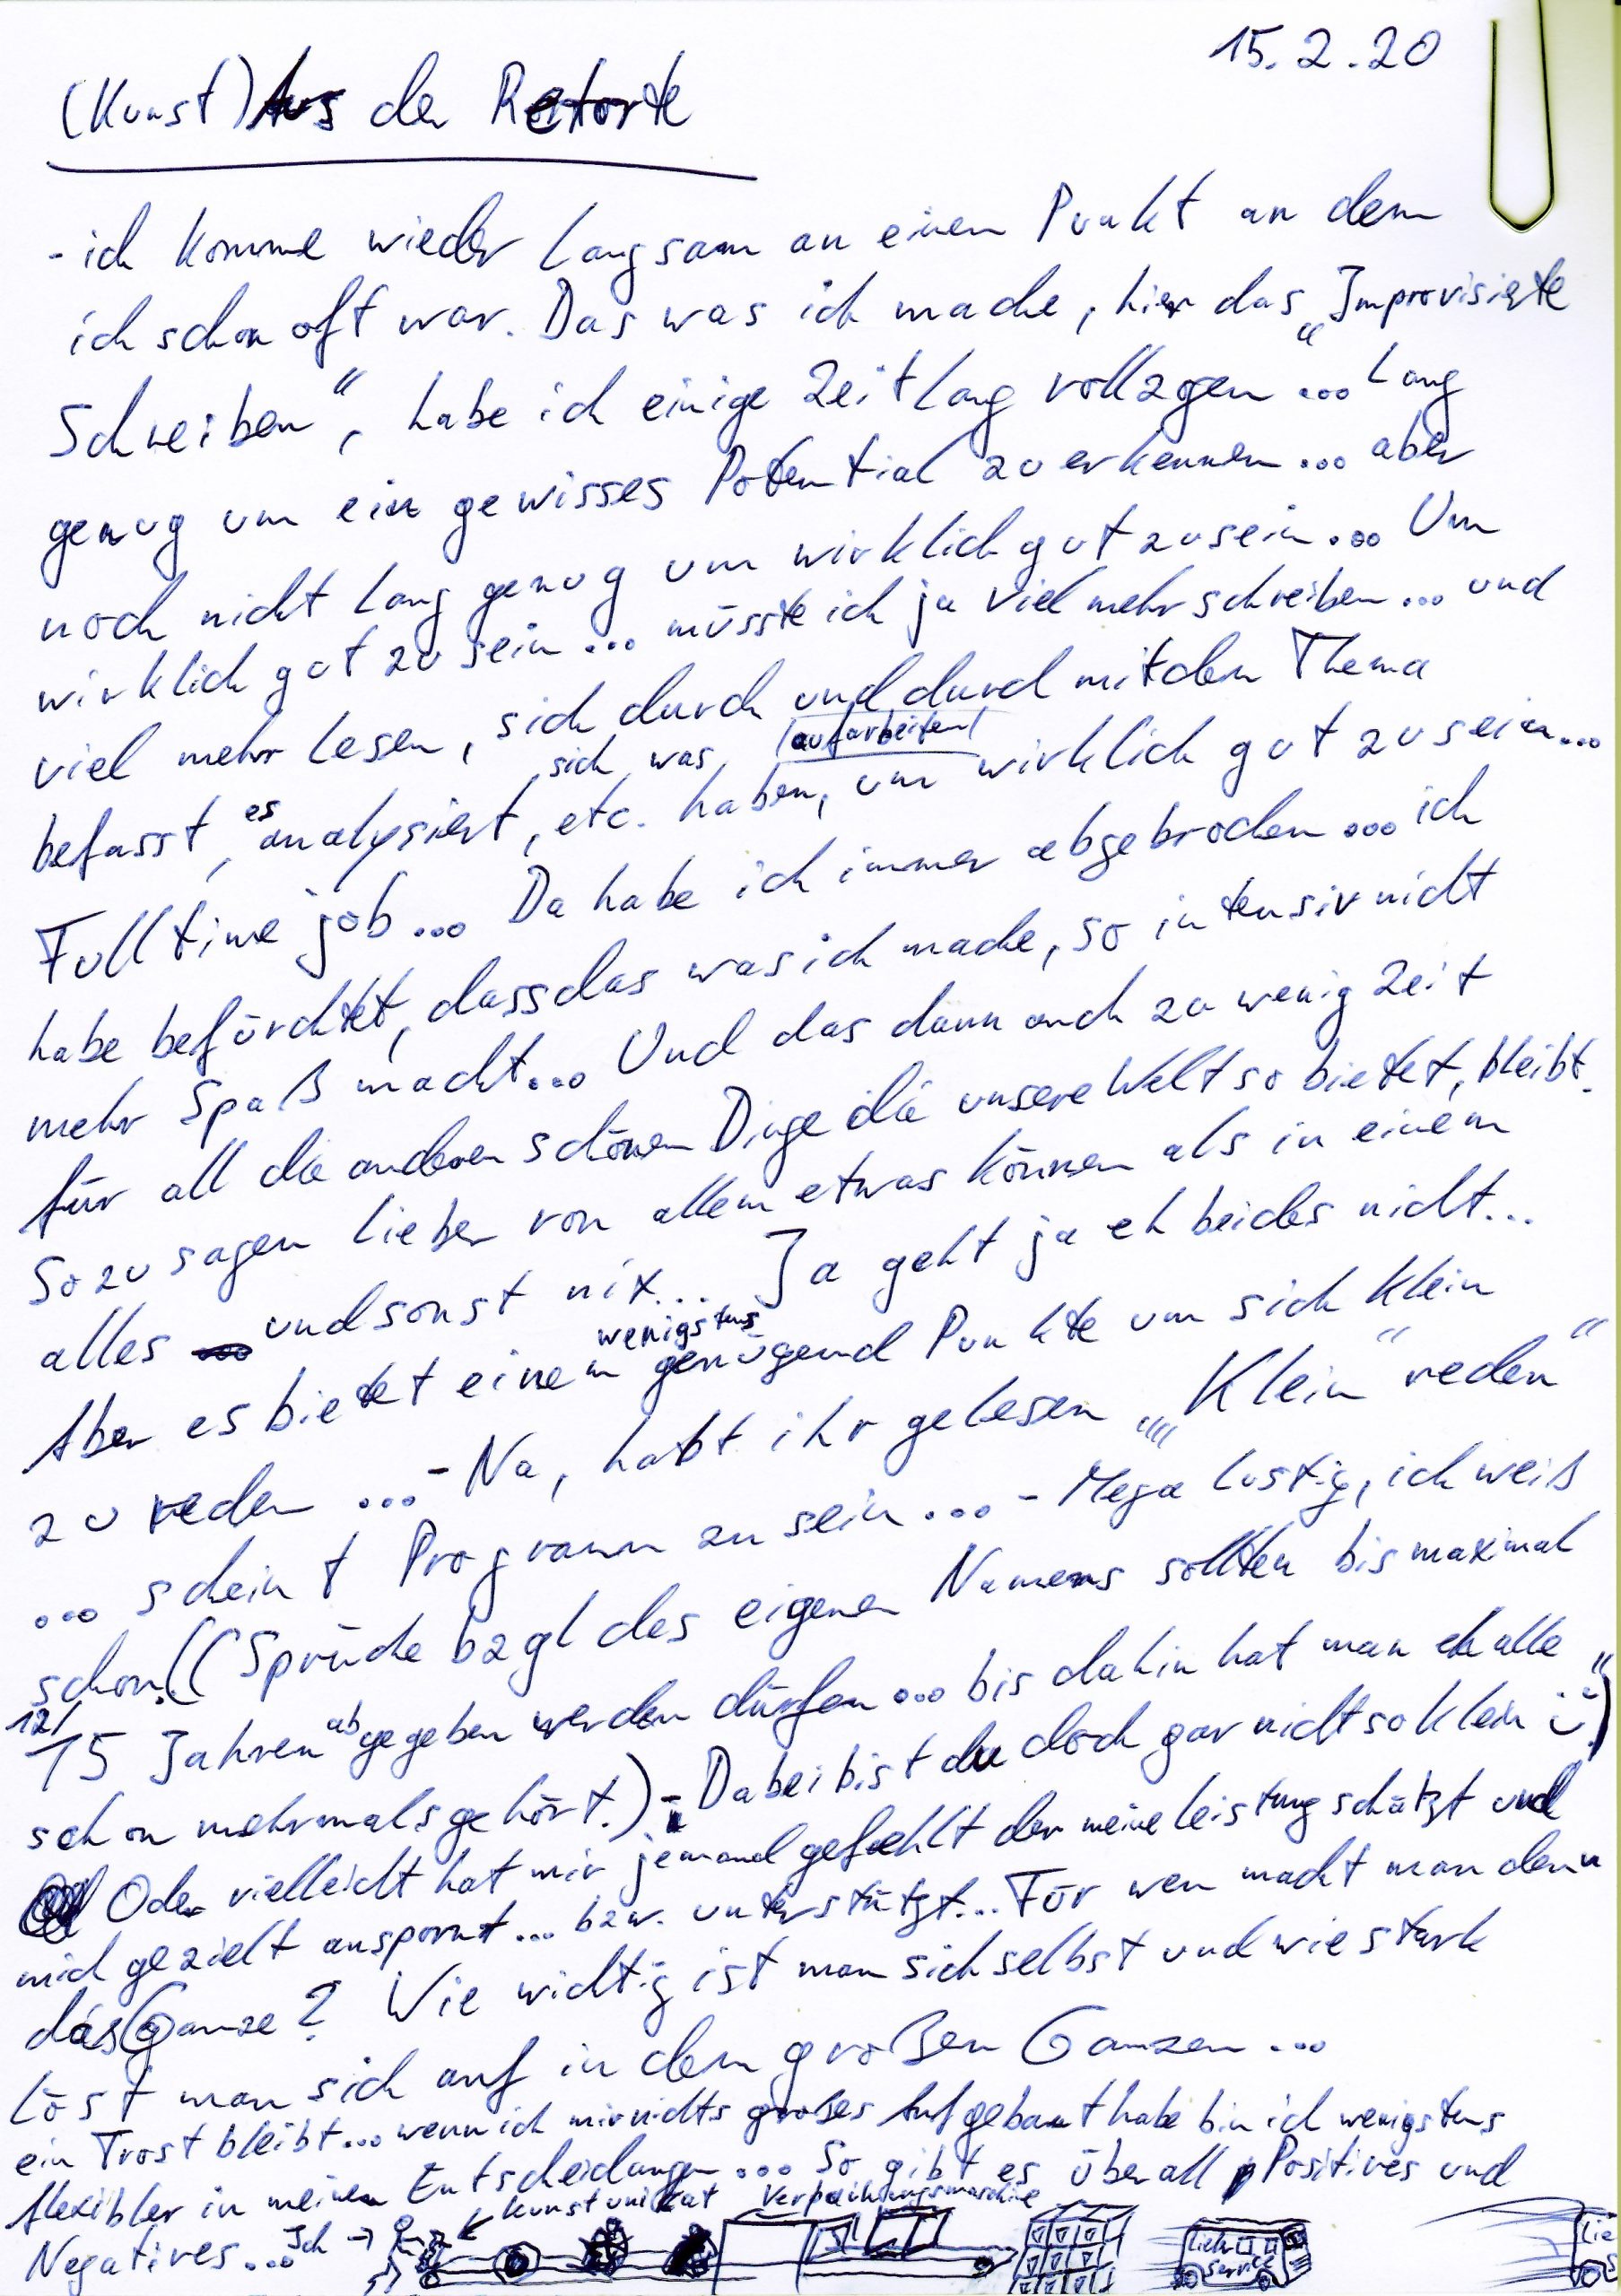 15.2.20
(Kunst) Aus der Retorte
- ich komme wieder langsam an einen Punkt an dem
ich schon oft war. Das was ich mache, hier das „Improvisierte
Schreiben“, habe ich einige Zeit lang vollzogen... lang
genug um ein gewisses Potential zu erkennen... aber
noch nicht lang genug um wirklich gut zu sein... Um
wirklich gut zu sein... müsste ich ja viel mehr schreiben... und
viel mehr lesen, sich durch und durch mit dem Thema
sich was (aufarbeiten)
befasst, es analysiert, etc. haben, um wirklich gut zu sein...
Fulltime job... Da habe ich immer abgebrochen... ich
habe befürchtet, dass das was ich mache, so intensiv nicht
mehr Spaß macht... Und das dann auch zu wenig Zeit
für all die anderen schönen Dinge die unsere Welt so bietet, bleibt.
So zu sagen lieber von allem etwas können als in einem
alles und sonst nix... Ja geht ja eh beides nicht...
Aber es bietet einem wenigstens genügend Punkte um sich klein
zu reden ... - Na, habt ihr gelesen „„Klein“ reden“
... scheint Programm zu sein... - Mega lustig, ich weiß
schon! ((Sprüche bzgl des eigenen Namens sollten bis maximal
12/15 Jahren abgegeben werden dürfen... bis dahin hat man eh alle
schon mehrmals gehört.) - Dabei bist du doch gar nicht so klein ü)
Oder vielleicht hat mir jemand gefehlt der meine Leistung schätzt und
mich gezielt anspornt... bzw. unterstützt... Für wen macht man denn
das Ganze? Wie wichtig ist man sich selbst und wie stark
löst man sich auf in dem großen Ganzen...
ein Trost bleibt... wenn ich mir nichts großes Aufgebaut habe bin ich wenigstens
flexibler in meinen Entscheidungen... So gibt es überall Positives und
Negatives... Ich → Kunstunikat Verpackungsmaschine
Liefer
Service
Lie
S